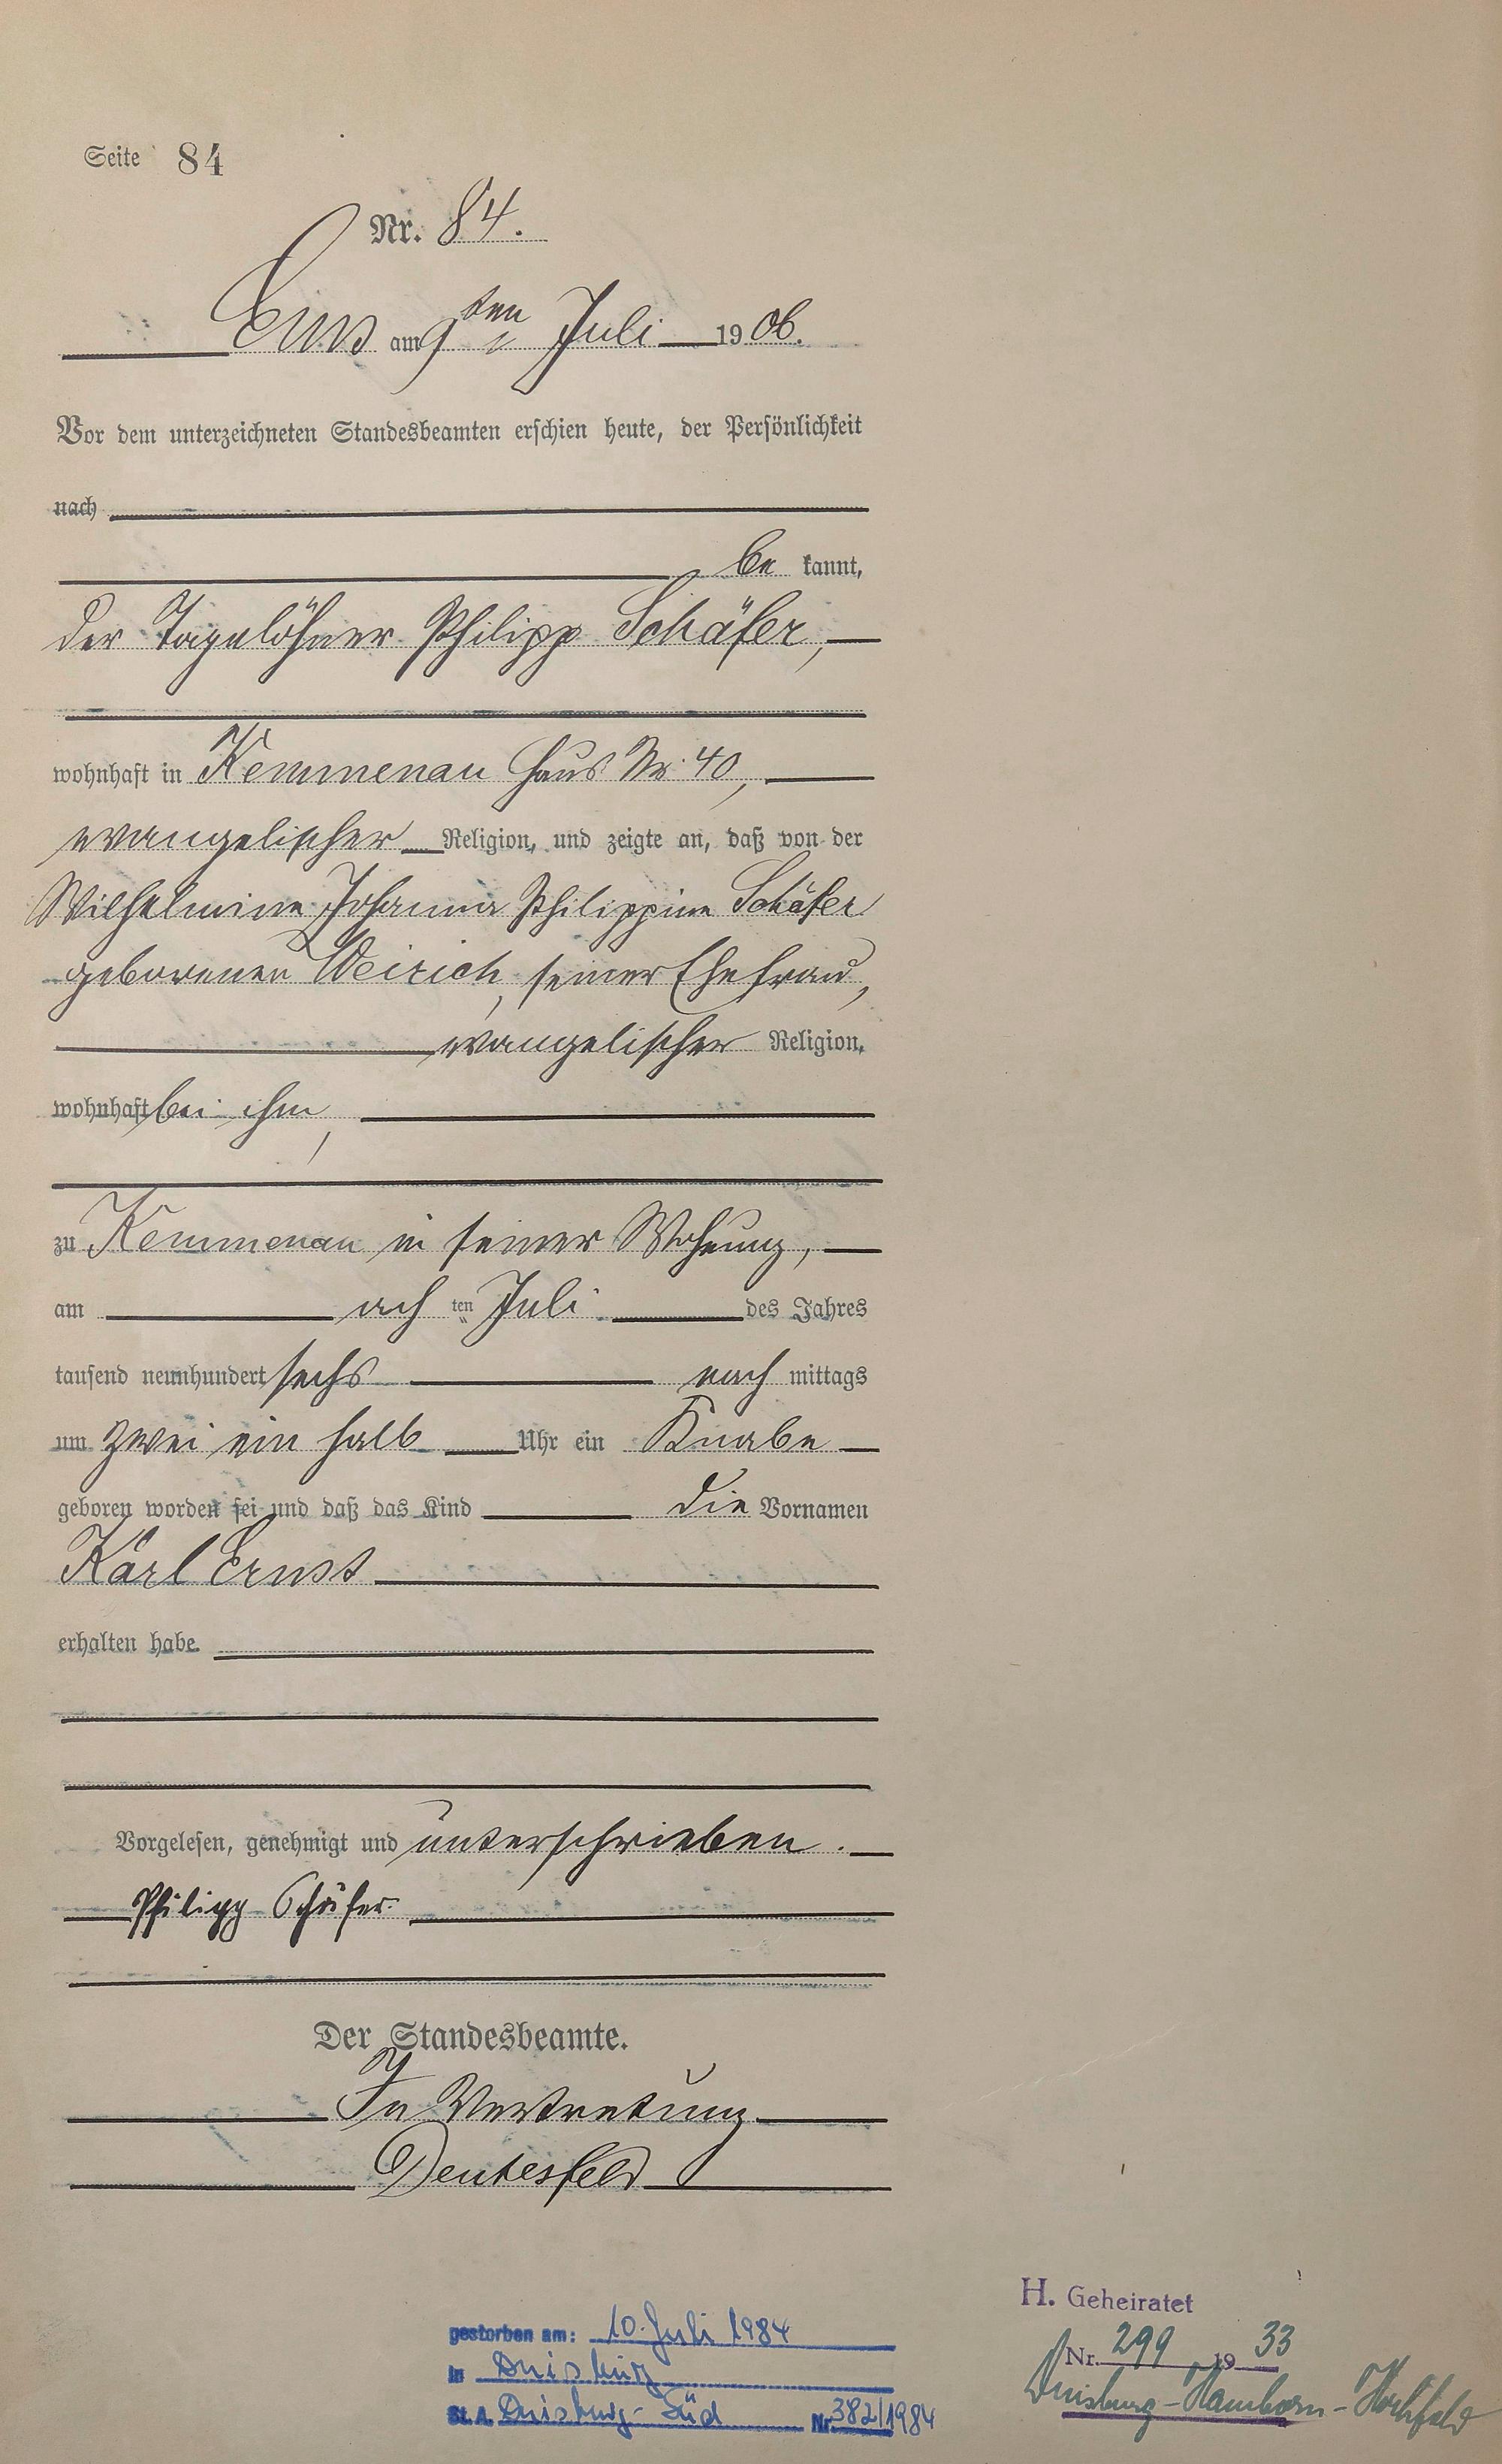 Seite 84
Nr. 84.
Ems am 9ten Juli 1906.
Vor dem unterzeichneten Standesbeamten erschien heute, der Persönlichkeit
nach
be kannt,
der Tagelöhner Philipp Schäfer,
wohnhaft in Kemmenau Haus Nr. 40,
evangelischer Religion, und zeigte an, daß von der
Wilhelmine Johanna Philippine Schäfer
geborenen Weirich, seiner Ehefrau,
evangelischer Religion,
wohnhaft bei ihm,
zu Kemmenau in seiner Wohnung,
am ach ten Juli des Jahres
tausend neunhundert sechs nach mittags
um zwei ein halb Uhr ein Knabe
geboren worden sei und daß das Kind die Vornamen
Karl Ernst
erhalten habe.
Vorgelesen, genehmigt und unterschrieben.
Philipp Schäfer
Der Standesbeamte.
In Vertretung
Deutesfeld
H. Geheiratet
Nr. 299 1933
Duisburg-Hamborn-Hochfeld
gestorben am: 10. Juli 1984
in Duisburg
St. A. Duisburg-Süd Nr. 382/1984